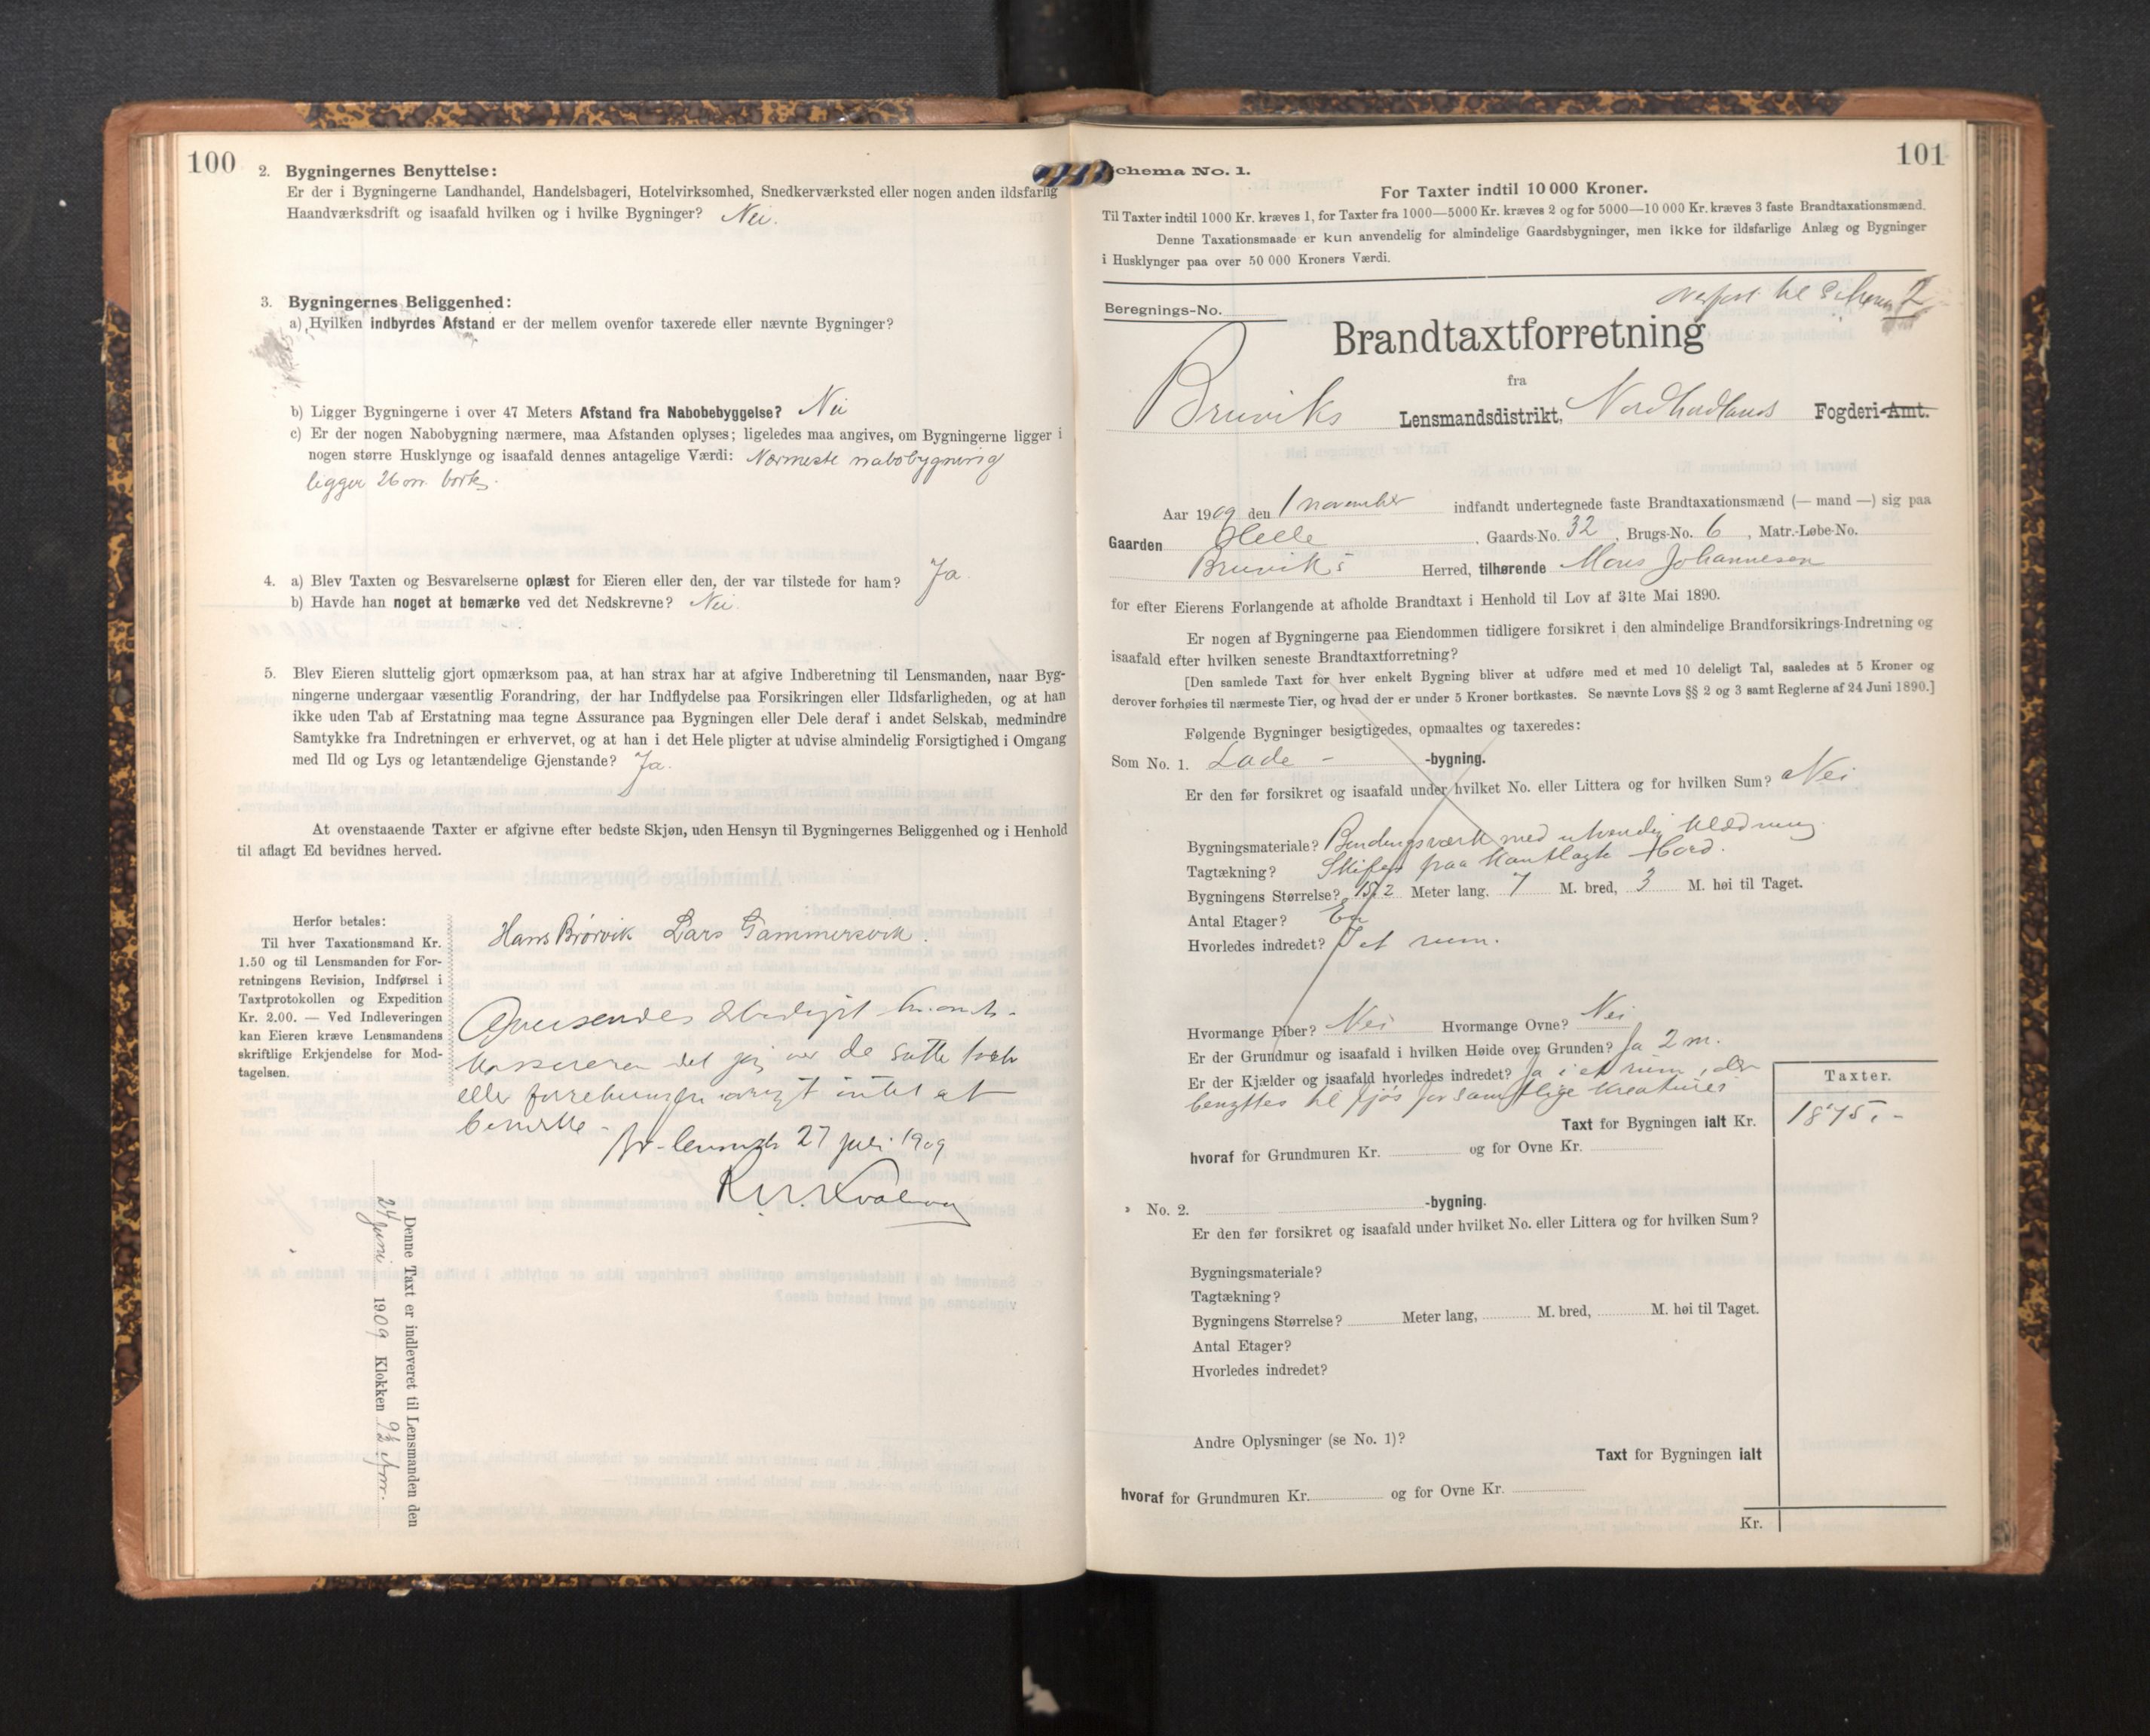 100
2. Bygningernes Benyttelse:
Er der i Bygningerne Landhandel, Handelsbageri, Hotelvirksomhed, Snedkerværksted eller nogen anden ildsfarlig
Haandværksdrift og isaafald hvilken og i hvilke Bygninger? Nei.
3. Bygningernes Beliggenhed:
a) Hvilken indbyrdes Afstand er der mellem ovenfor taxerede eller nævnte Bygninger?
b) Ligger Bygningerne i over 47 Meters Afstand fra Nabobebyggelse? Nei
c) Er der nogen Nabobygning nærmere, maa Afstanden oplyses; ligeledes maa angives, om Bygningerne ligger i
nogen større Husklynge og isaafald dennes antagelige Værdi: Nærmeste nabobygning
ligger 26 m. borte.
4. a) Blev Taxten og Besvarelserne oplæst for Eieren eller den, der var tilstede for ham? Ja.
b) Havde han noget at bemærke ved det Nedskrevne? Nei.
5. Blev Eieren sluttelig gjort opmærksom paa, at han strax har at afgive Indberetning til Lensmanden, naar Byg-
ningerne undergaar væsentlig Forandring, der har Indflydelse paa Forsikringen eller Ildsfarligheden, og at han
ikke uden Tab af Erstatning maa tegne Assurance paa Bygningen eller Dele deraf i andet Selskab, medmindre
Samtykke fra Indretningen er erhvervet, og at han i det Hele pligter at udvise almindelig Forsigtighed i Omgang
med Ild og Lys og letantændelige Gjenstande? Ja.
At ovenstaaende Taxter er afgivne efter bedste Skjøn, uden Hensyn til Bygningernes Beliggenhed og i Henhold
til aflagt Ed bevidnes herved.
Herfor betales:
Til hver Taxationsmand Kr.
1.50 og til Lensmanden for For-
retningens Revision, Indførsel i
Taxtprotokollen og Expedition
Kr. 2.00. — Ved Indleveringen
kan Eieren kræve Lensmandens
skriftlige Erkjendelse for Mod-
tagelsen.
Hans Brørvik Lars Gammersvik.
Oversendes ærbødigst brand-
kassereren det jeg ved de satte takster
eller forretningen øvrigt intet at
bemerke.
27 juli 1909
Denne Taxt er indleveret til Lensmanden den
24 juni 1909 Klokken 9½ form.
101
Schema No. 1.
For Taxter indtil 10 000 Kroner.
Til Taxter indtil 1000 Kr. kræves 1, for Taxter fra 1000—5000 Kr. kræves 2 og for 5000—10 000 Kr. kræves 3 faste Brandtaxationsmænd.
Denne Taxationsmaade er kun anvendelig for almindelige Gaardsbygninger, men ikke for ildsfarlige Anlæg og Bygninger
i Husklynger paa over 50 000 Kroners Værdi.
overført til Schema 2
Beregnings-No.
Brandtaxtforretning
fra
Bruviks Lensmandsdistrikt, Nordhordlands Fogderi-Amt.
Aar 1909 den 1 november indfandt undertegnede faste Brandtaxationsmænd (— mand —) sig paa
Gaarden Helle, Gaards-No. 32, Brugs-No. 6, Matr.-Løbe-No.
Bruviks Herred, tilhørende Mons Johannesen
for efter Eierens Forlangende at afholde Brandtaxt i Henhold til Lov af 31te Mai 1890.
Er nogen af Bygningerne paa Eiendommen tidligere forsikret i den almindelige Brandforsikrings-Indretning og
isaafald efter hvilken seneste Brandtaxtforretning?
[Den samlede Taxt for hver enkelt Bygning bliver at udføre med et med 10 deleligt Tal, saaledes at 5 Kroner og
derover forhøies til nærmeste Tier, og hvad der er under 5 Kroner bortkastes. Se nævnte Lovs §§ 2 og 3 samt Reglerne af 24 Juni 1890.]
Følgende Bygninger besigtigedes, opmaaltes og taxeredes:
Som No. 1. Lade - -bygning.
Er den før forsikret og isaafald under hvilket No. eller Littera og for hvilken Sum? Nei
Bygningsmateriale? Bindingsværk med utvendig klædning.
Tagtækning? Skifer paa kantlagte bord.
Bygningens Størrelse? 15.2 Meter lang. 7 M. bred, 3 M. høi til Taget.
Antal Etager? En
Hvorledes indredet? I et rum.
Hvormange Piber? Nei Hvormange Ovne? Nei
Er der Grundmur og isaafald i hvilken Høide over Grunden? Ja 2 m.
Er der Kjælder og isaafald hvorledes indredet? Ja i et rum, der
benyttes til fjøs for samtlige kreaturer
Taxter.
Taxt for Bygningen ialt Kr. 1875,-
hvoraf for Grundmuren Kr. og for Ovne Kr.
No. 2. -bygning.
Er den før forsikret og isaafald under hvilket No. eller Littera og for hvilken Sum?
Bygningsmateriale?
Tagtækning?
Bygningens Størrelse? Meter lang, M. bred, M. høi til Taget.
Antal Etager?
Hvorledes indredet?
Andre Oplysninger (se No. 1)?
Taxt for Bygningen ialt
hvoraf for Grundmuren Kr. og for Ovne Kr.
Kr.